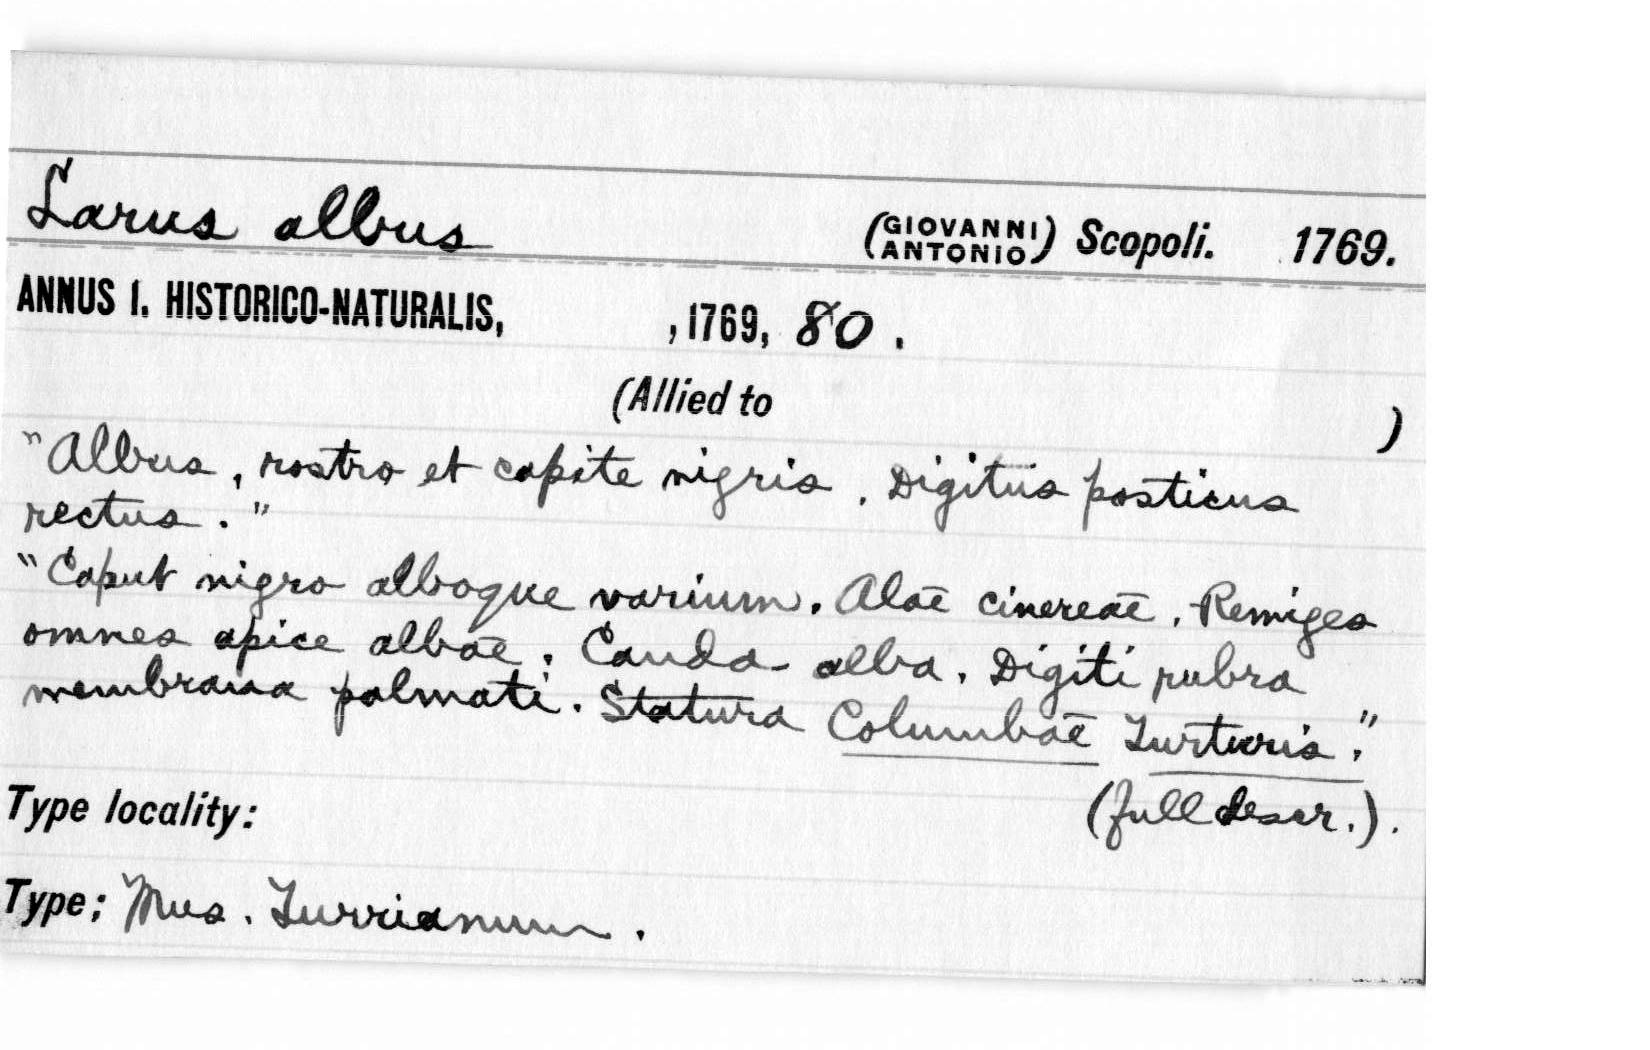 Larus albus (GIOVANNI ANTONIO) Scopoli. 1769.
ANNUS I. HISTORICO-NATURALIS, , 1769, 80 .
(Allied to )
"Albus, rostro et capite nigris. Digitus posticus
rectus."
"Caput nigro alboque varium. Alae cinereae. Remiges
omnes apice albae. Cauda alba. Digiti rubra
membrana palmati. Statura Columbae Turturis."
(full descr.).
Type locality:
Type; Mus. Turrianum.